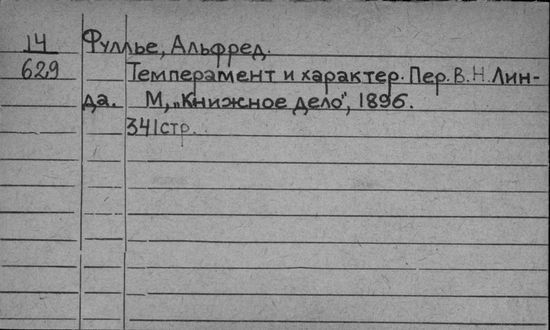 14 Фуллье, Альфред.
629 Темперамент и характер. Пер. В.Н. Лин-
да. М., „Книжное дело", 1896.
341 стр.